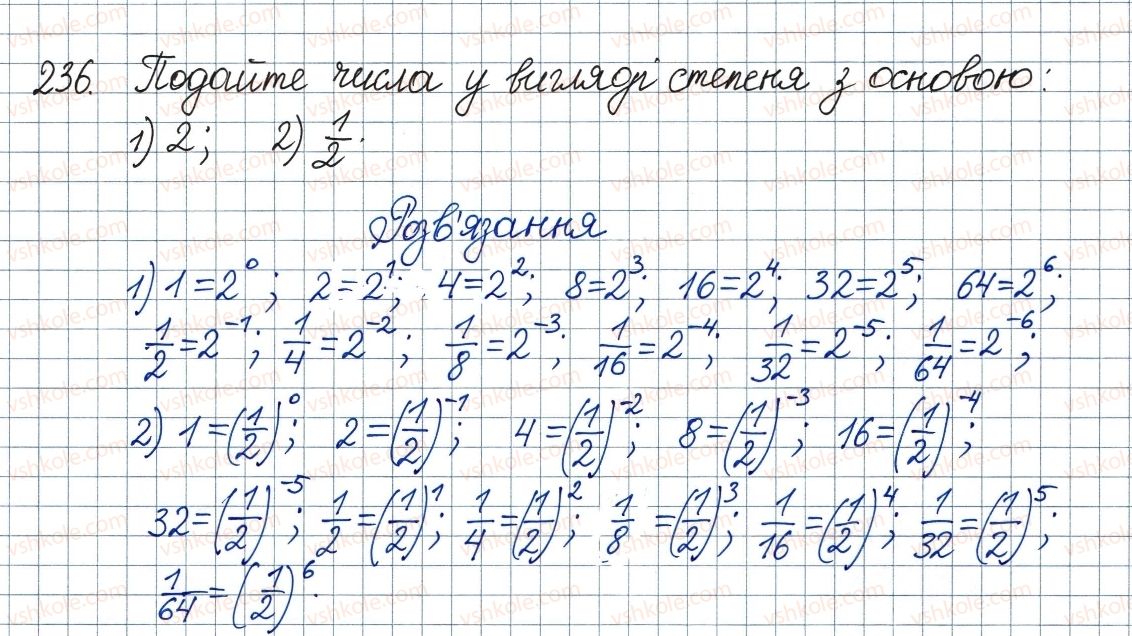 236. Подайте числа у вигляді степеня з основою:
1) 2; 2) 1/2.
Розв'язання
1) 1=2^0; 2=2^1; 4=2^2; 8=2^3; 16=2^4; 32=2^5; 64=2^6;
1/2=2^-1; 1/4=2^-2; 1/8=2^-3; 1/16=2^-4; 1/32=2^-5; 1/64=2^-6;
2) 1=(1/2)^0; 2=(1/2)^-1; 4=(1/2)^-2; 8=(1/2)^-3; 16=(1/2)^-4;
32=(1/2)^-5; 1/2=(1/2)^1; 1/4=(1/2)^2; 1/8=(1/2)^3; 1/16=(1/2)^4; 1/32=(1/2)^5;
1/64=(1/2)^6.
vshkole.com